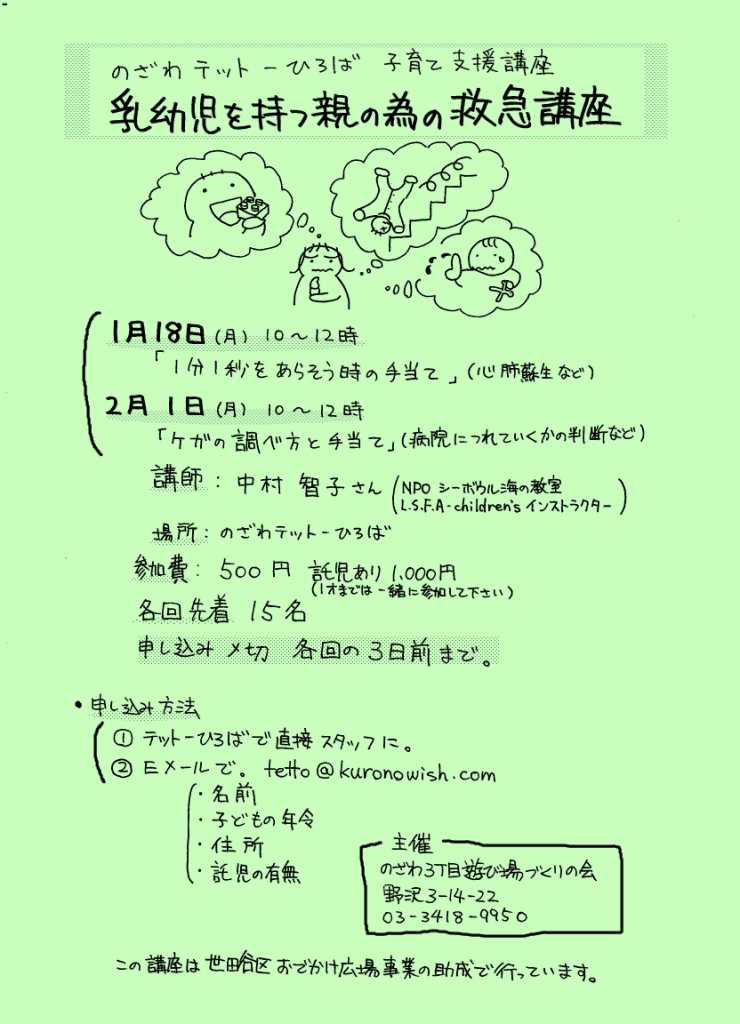 のざわテットーひろば 子育て支援講座
乳幼児を持つ親の為の救急講座
1月18日(月) 10～12時
「1分1秒をあらそう時の手当て」(心肺蘇生など)
2月1日(月) 10～12時
「ケガの調べ方と手当て」(病院につれていくかの判断など)
講師：中村 智子さん (NPO シーボウル海の教室
L.S.F.A-children's インストラクター)
場所：のざわテットーひろば
参加費：500円 託児あり 1,000円
(1才までは一緒に参加して下さい)
各回先着 15名
申し込み〆切 各回の3日前まで。
・申し込み方法
① テットーひろばで直接スタッフに。
② Eメールで。 tetto@kuronowish.com
・名前
・子どもの年令
・住所
・託児の有無
主催
のざわ3丁目遊び場づくりの会
野沢3-14-22
03-3418-9950
この講座は世田谷区おでかけ広場事業の助成で行っています。